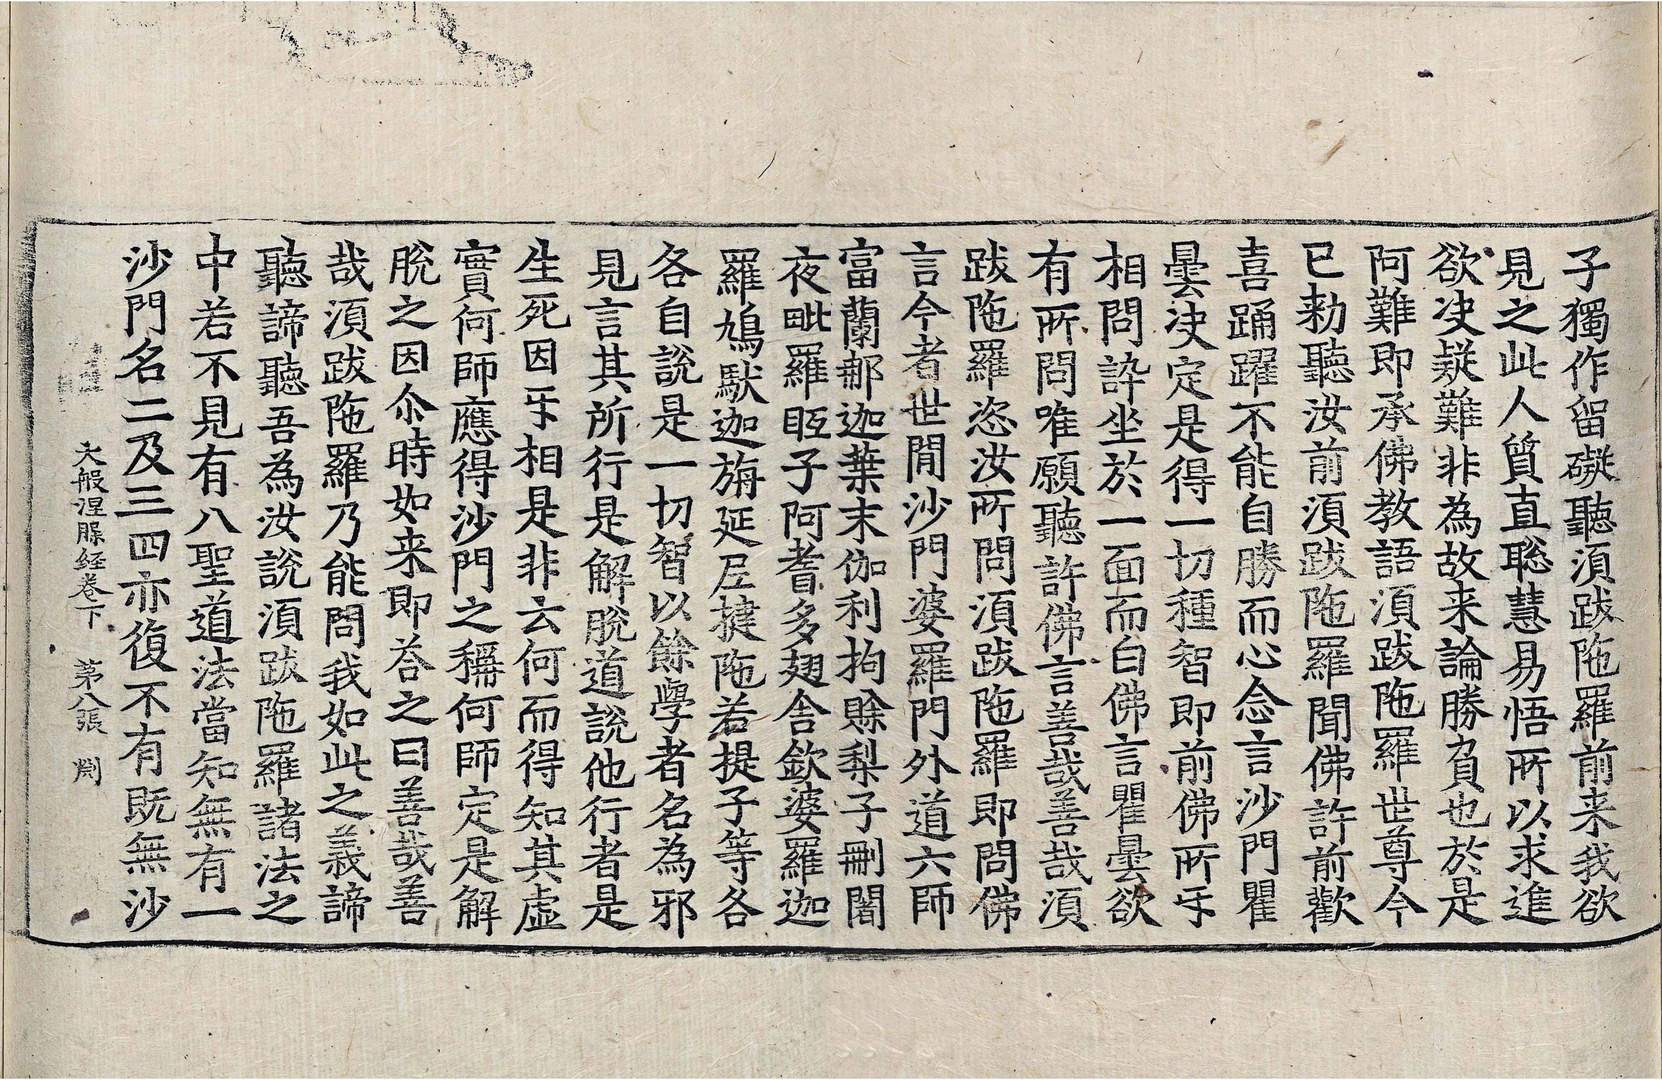 子獨作留礙聽湏跋陁羅前来我欲
見之此人質直聡慧易悟所以求進
欲决疑難非為故来論勝負也於是
阿難即承佛教語湏跋陁羅世尊今
已勑聽汝前湏跋陁羅聞佛許前歡
喜踊躍不能自勝而心念言沙門瞿
曇决定是得一切種智即前佛所㸦
相問訊坐於一面而白佛言瞿曇欲
有所問唯願聽許佛言善哉善哉湏
跋陁羅恣汝所問湏跋陁羅即問佛
言今者世間沙門婆羅門外道六師
富蘭郍迦葉末伽利拘賖梨子刪闍
夜毗羅胝子阿耆多翅舍欽婆羅迦
羅鳩馱迦旃延尼揵陁若提子等各
各自說是一切智以餘學者名為邪
見言其所行是解脫道說他行者是
生死因㸦相是非云何而得知其虛
實何師應得沙門之稱何師定是解
脫之因尒時如来即荅之曰善哉善
哉湏跋陁羅乃能問我如此之義諦
聽諦聽吾為汝說湏跋陁羅諸法之
中若不見有八聖道法當知無有一
沙門名二及三四亦復不有既無沙
大般涅槃経卷下　第八張　𠛬